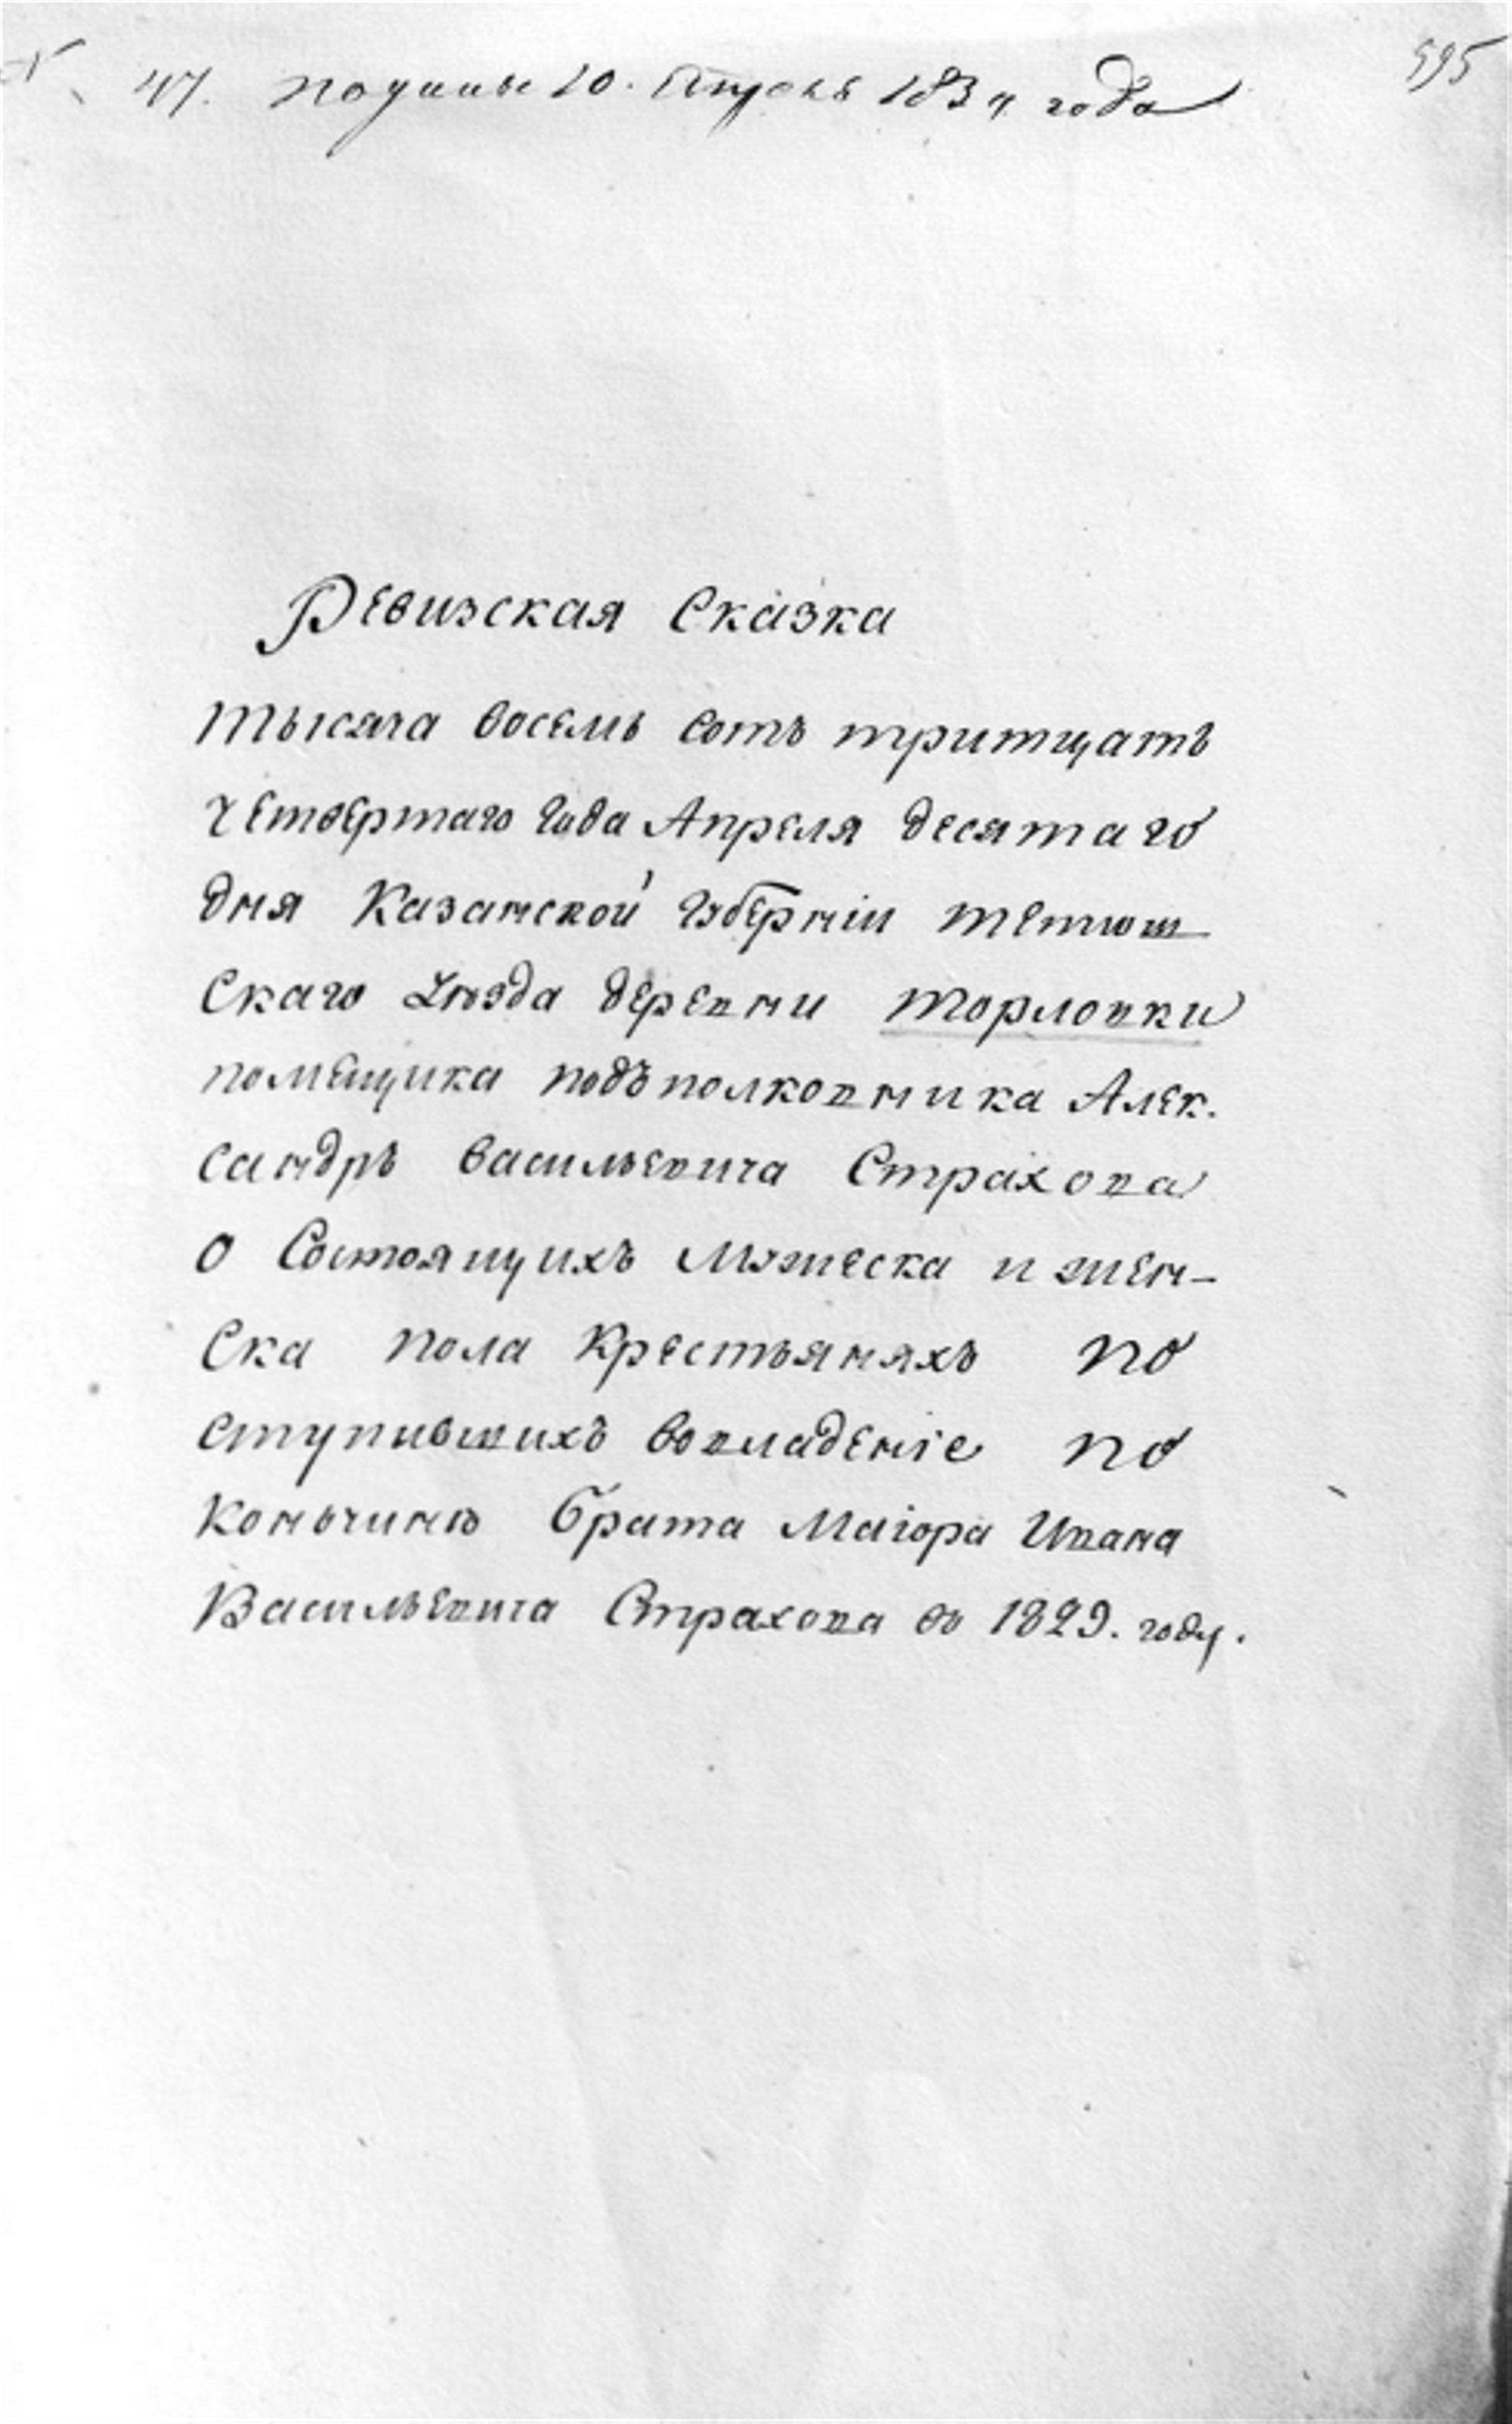 № 47. получена 10. Апреля 1834 года
595
Ревизская Сказка
тысяча восемь сотъ тритцать
четвертаго года Апреля десятаго
дня Казанской Губерніи тетюш
скаго уѣзда деревни Торловки
помещика подъполковника Алек.
сандръ васильевича Страхова
о Состоящихъ мужеска и жен-
ска пола крестьяняхъ по
ступившихъ вовладеніе по
коньчинѣ брата Маіора Ивана
Васильевича Страхова въ 1829. году.